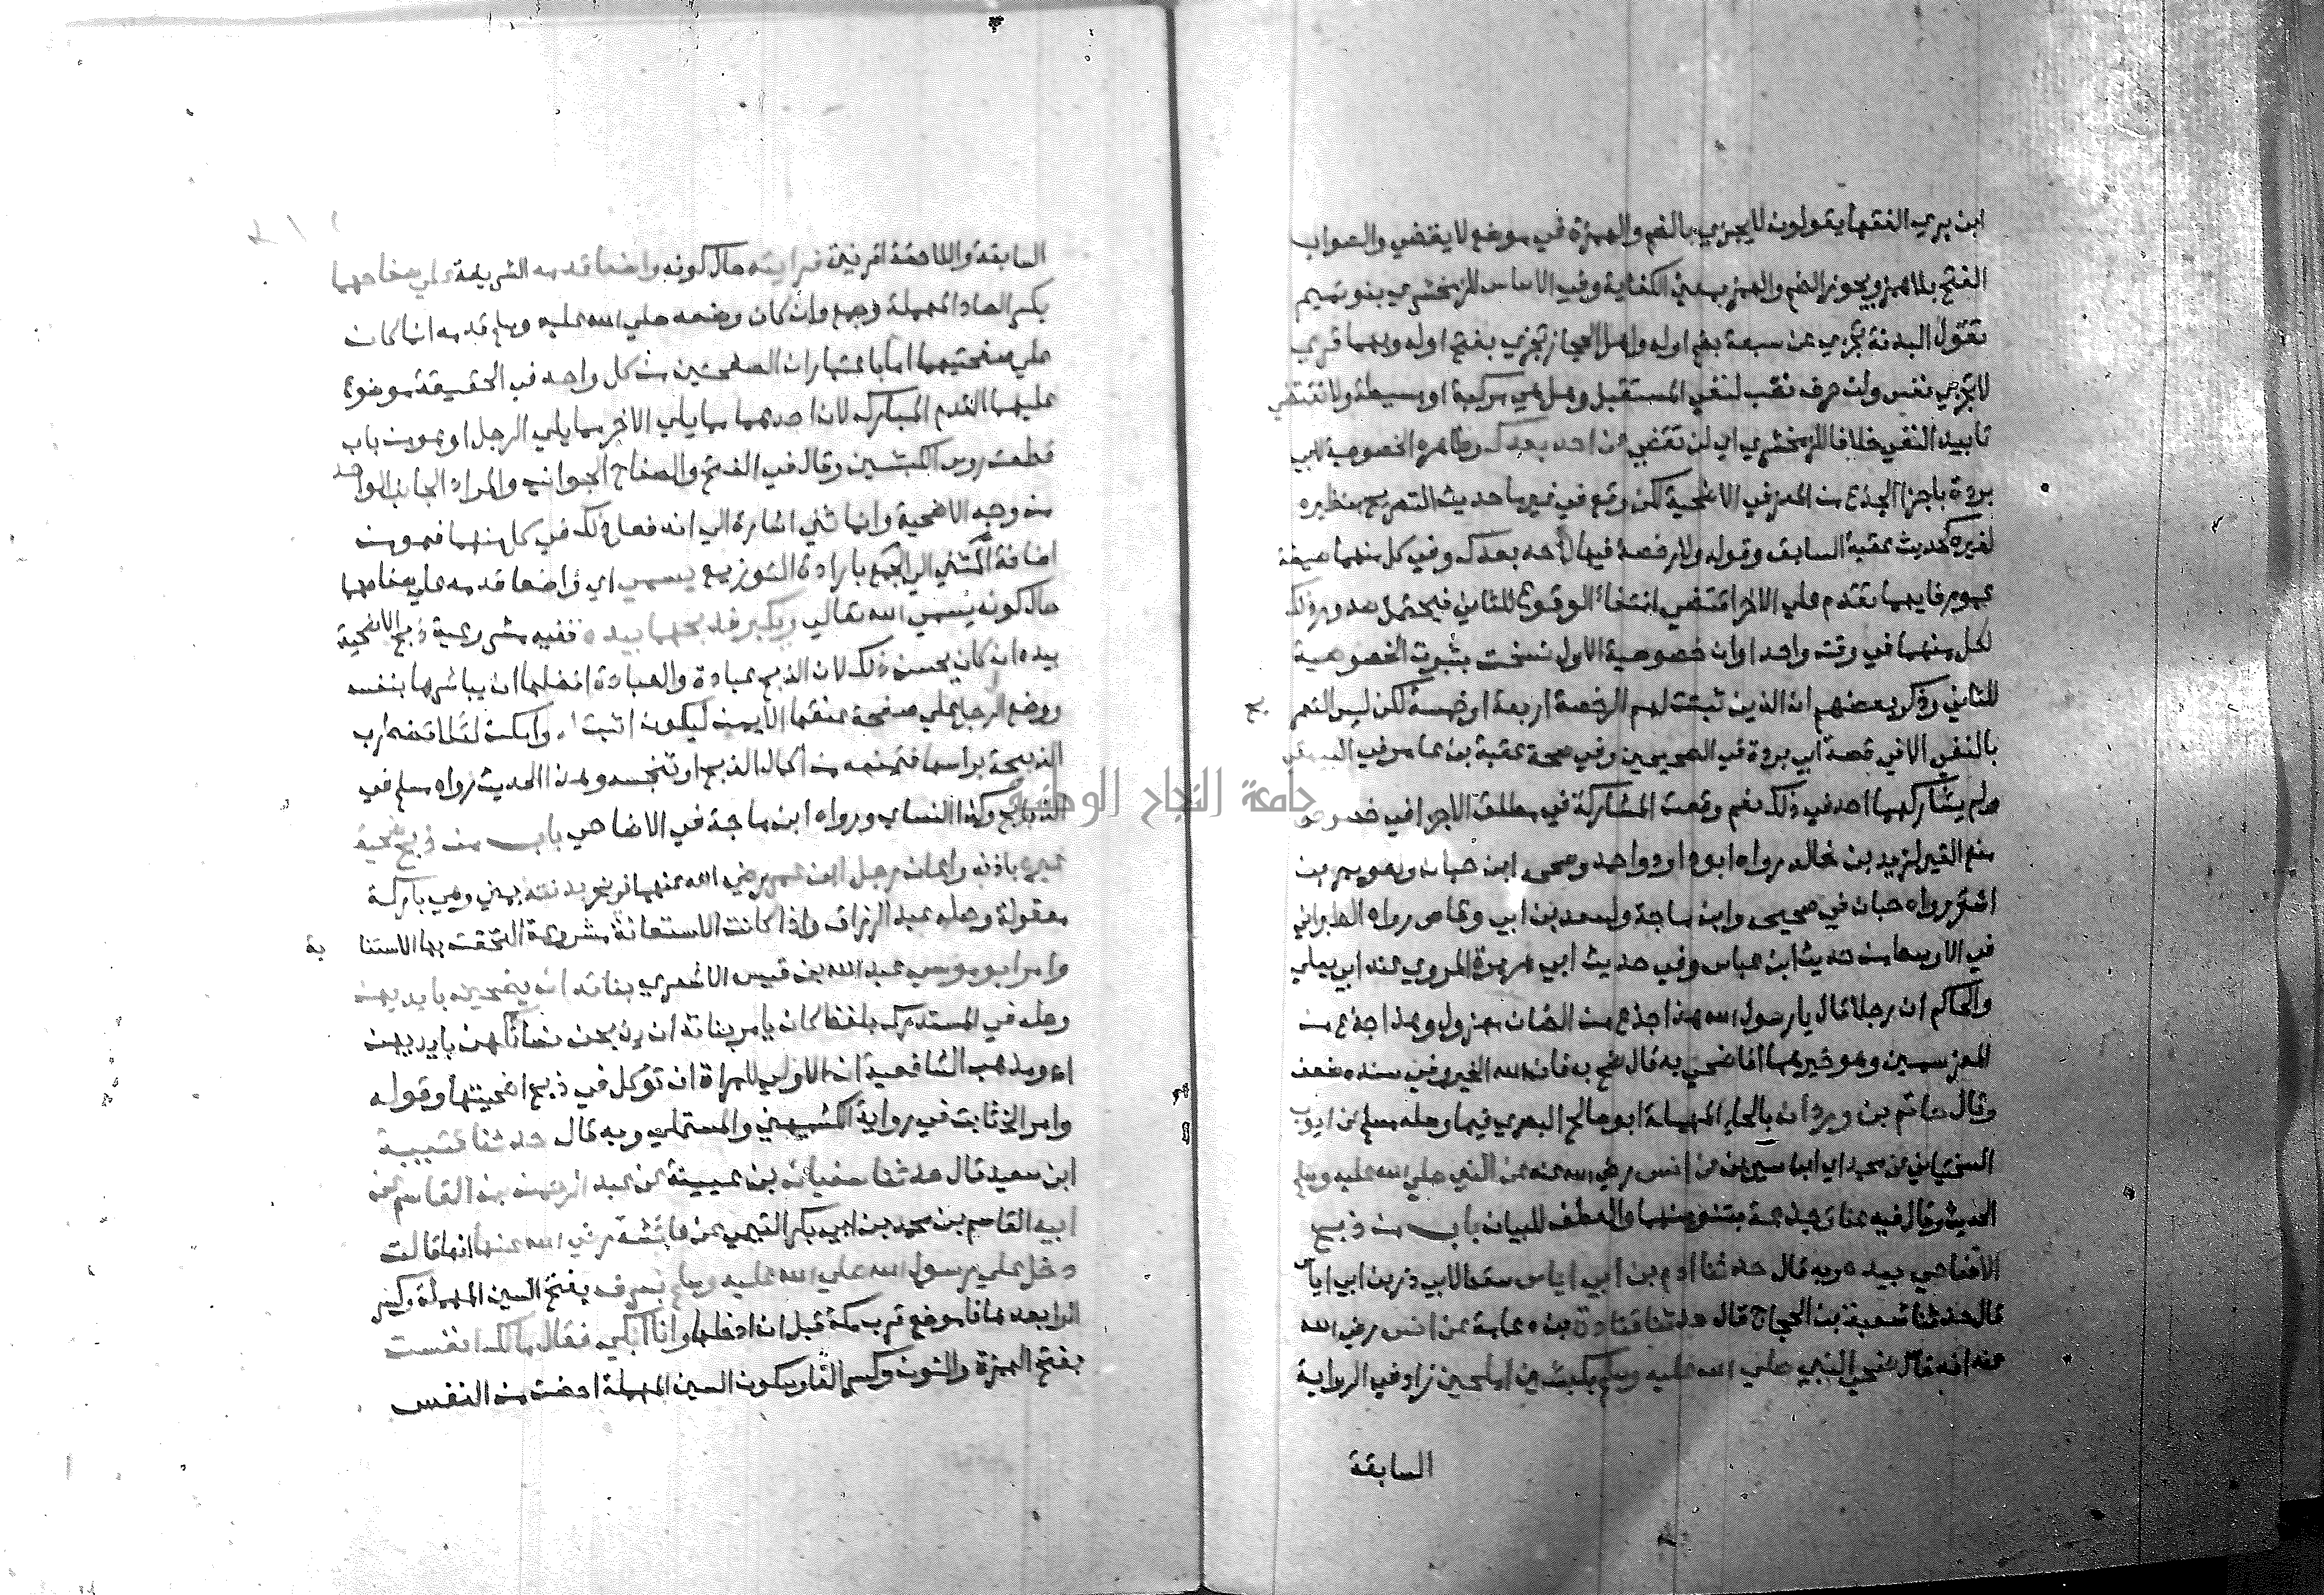 ابن بري الفقها يقولون لا يجزي بالضم والهمزة في موضع لا يقضي والصواب
الفتح بلا همز ويجوز الضم والهمز بمعني الكفاية وفي الاساس للزمخشري بنو تميم
تقول البدنة تجزي عن سبعة بضم اوله واهل الحجاز تجزي بفتح اوله وبهما قري
لا تجزي نفس ولن حرف نصب لنفي المستقبل وهل هي مركبة او بسيطة ولا تقتضي
تابيد النفي خلافا للزمخشري اي لن تقضي عن احد بعدك وظاهره الخصوصية لابي
بردة باجزا الجذع من المعز في الاضحية لكن وقع في غير ما حديث التصريح بنظيره
لغيره كحديث عقبة السابق وقوله ولا رخصة فيها لاحد بعدك وفي كل منهما صيغة
عموم فايهما تقدم علي الاخر اقتضي انتفاء الوقوع للثاني فيحتمل صدور ذلك
لكل منهما في وقت واحد او ان خصوصية الاول نسخت بثبوت الخصوصية
للثاني وذكر بعضهم ان الذين ثبتت لهم الرخصة اربعة او خمسة لكن ليس التصر
يح
بالنفي الا في قصة ابي بردة في الصحيحين وفي صحة عقبة بن عامر في البيهقي
ولم يشاركهما احد في ذلك نعم وقعت المشاركة في مطلق الاجزا في خصوص
منع الغير لزيد بن خالد رواه ابوداود واحمد وصححه ابن حبان ولعويمر بن
اشقر رواه حبان في صحيحه وابن ماجة ولسعد بن ابي وقاص رواه الطبراني
في الاوسط من حديث ابن عباس وفي حديث ابي هريرة المروي عند ابي يعلي
والحاكم ان رجلا قال يا رسول الله هذا جذع من الضان مهزول وهذا جذع من
المعز سمين وهو خيرهما افاضحي به قال ضح به فان لله الخير وفي سنده ضعف
وقال حاتم بن وردان بالحاء المهملة ابو صالح البصري فيما وصله مسلم عن ايوب
السختياني عن محمد اي ابن سيرين عن انس رضي الله عنه عن النبي صلي الله عليه وسلم
الحديث وقال فيه عناق جذعة بتنوينهما والعطف للبيان باب من ذبح
الاضاحي بيده وبه قال حدثنا ادم بن ابي اياس سقط لابي ذر بن ابي اياس
قال حدثنا شعبة بن الحجاج قال حدثنا قتادة بن دعامة عن انس رضي الله
عنه انه قال ضحي النبي صلي الله عليه وسلم بكبشين املحين زاد في الرواية
السابقة
السابقة واللاحقة اقرنين فرايته حال كونه واضعا قدمه الشريفة علي صفاحهما
بكسر الصاد المهملة وجمع وان كان وضعه صلي الله عليه وسلم قدمه انما كان
علي صفحتيهما اما باعتبار ان الصفحتين من كل واحد في الحقيقة موضوع
عليهما القدم المباركه لان احدهما مما يلي الاخر مما يلي الرجل او هو من باب
قطعت روس الكبشين وقال في الفتح والصفاح الجوانب والمراد الجانب الواحد
من وجه الاضحية وانما ثني اشارة الي انه فعل ذلك في كل منهما فهو من
اضافة المثني الي الجمع بارادة التوزيع يسمي اي واضعا قدمه علي صفاحهما
حال كونه يسمي الله تعالي ويكبر فذبحهما بيده ففيه مشروعية ذبح الاضحية
بيده ان كان يحسن ذلك لان الذبح عبادة والعبادة افضلها ان يباشرها بنفسه
ووضع الرجل علي صفحة عنقها الايمن ليكون اثبت له وامكن لئلا تضطرب
الذبيحة براسها فتمنعه من اكمال الذبح او تنجسه وهذا الحديث رواه مسلم في
الذبايح وكذا النساي ورواه ابن ماجة في الاضاحي باب من ذبح ضحية
غيره باذنه واعان رجل ابن عمر رضي الله عنهما في نحر بدنته بمني وهي باركة
معقولة وصله عبد الرزاق واذا كانت الاستعانة مشروعة التحقت بها الاستنا
بة
وامر ابو موسي عبد الله بن قيس الاشعري بناته ان يضحين بايديهن
وصله في المستدرك بلفظ كان يامر بناته ان يذبحن نسائكهن بايديهن
اه ومذهب الشافعية ان الاولي للمراة ان توكل في ذبح اضحيتها وقوله
وامر الخ ثابت في رواية الكشميهني والمستملي وبه قال حدثنا قتيبة
ابن سعيد قال حدثنا سفيان بن عيينة عن عبد الرحمن بن القاسم عن
ابيه القاسم بن محمد بن ابي بكر التيمي عن عائشة رضي الله عنها انها قالت
دخل علي رسول الله صلي الله عليه وسلم بسرف بفتح السين المهملة وكسر
الرا بعدها فا موضع قرب مكة قبل ان ادخلها وانا ابكي فقال مالك انفست
بفتح الهمزة والنون وكسر الفا وسكون السين المهملة احضت من النفس
جامعة النجاح الوطنية